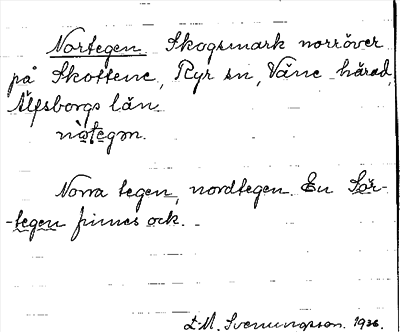 Nortegen Skogsmark norröver
på Skottene, Ryr sn, Väne härad,
Älfsborgs län
nòtegɷn.
Norra tegen, nordtegen. En Sör-
-tegen finnes ock.
L.M. Svenungsson. 1936.